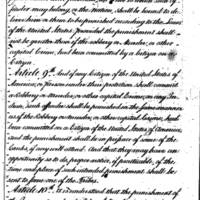 under may belong, or the Nation, shall be bound to de-
liver him or them to be punished according to the Laws
of the United States. Provided the punishment shall
not be greater than if the robbery or Murder, or other
capital Crime, had been committed by a Citizen on
a Citizen.
Article 9th. And if any Citizen of the United States of
America, or Person under their protection, shall commit
a Robbery or Murder, or other capital Crime, on any In-
dian, such offender shall be punished in the same manner
as if the Robbery or Murder, or other capital Crime, had
been committed on a Citizen of the United States of America,
and the punishment shall be in presence of some of the
, if any will attend. And that they may have an
opportunity so to do, proper notice, if practicable, of the
time and place of such intended punishment shall be
sent to some one of the Tribes.
Article 10th. It is understood that the punishment of